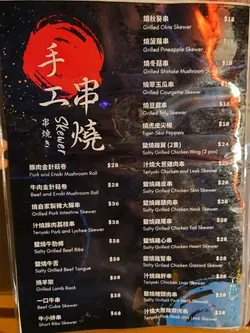 手工串燒
Skewer
串燒
豚肉金針菇卷 $28
Pork and Enoki Mushroom Roll
牛肉金針菇卷 $28
Beef and Enoki Mushroom Roll
燒自家製豬大腸串 $28
Grilled Pork Intestine Skewer
汁燒豚肉荔枝串 $28
Teriyaki Pork and Lychee Skewer
鹽燒牛肋條 $28
Salty Grilled Beef Ribs
鹽燒牛舌 $28
Salty Grilled Beef Tongue
燒羊架
Grilled Lamb Rack
一口牛串
Beef Cube Skewer
牛小排串
Short Ribs Skewer
燒秋葵串 $18
Grilled Okra Skewer
燒菠蘿串
Grilled Pineapple Skewer
燒冬菇串 $18
Grilled Shiitake Mushroom Skewer
燒翠玉瓜串
Grilled Courgette Skewer
燒豆腐串
Grilled Tofu Skewer
燒虎皮尖椒
Tiger-Skin Peppers
鹽燒雞翼 (2隻)
Salty Grilled Chicken Wing (2 pcs)
汁燒大蔥雞肉串
Teriyaki Chicken and Leek Skewer
鹽燒雞皮串
Salty Grilled Chicken Skin Skewer
鹽燒雞頸肉串
Salty Grilled Chicken Neck Skewer
鹽燒雞尾串
Salty Grilled Chicken Tail Skewer
鹽燒雞心串
Salty Grilled Chicken Heart Skewer
鹽燒雞腎串
Salty Grilled Chicken Gizzard Skewer
汁燒雞肝串
Teriyaki Chicken Liver Skewer
鹽燒豬頸肉串
Salty Grilled Pork Neck Skewer
汁燒大蔥豬頸肉串
Teriyaki Pork Neck and Leek Skewer